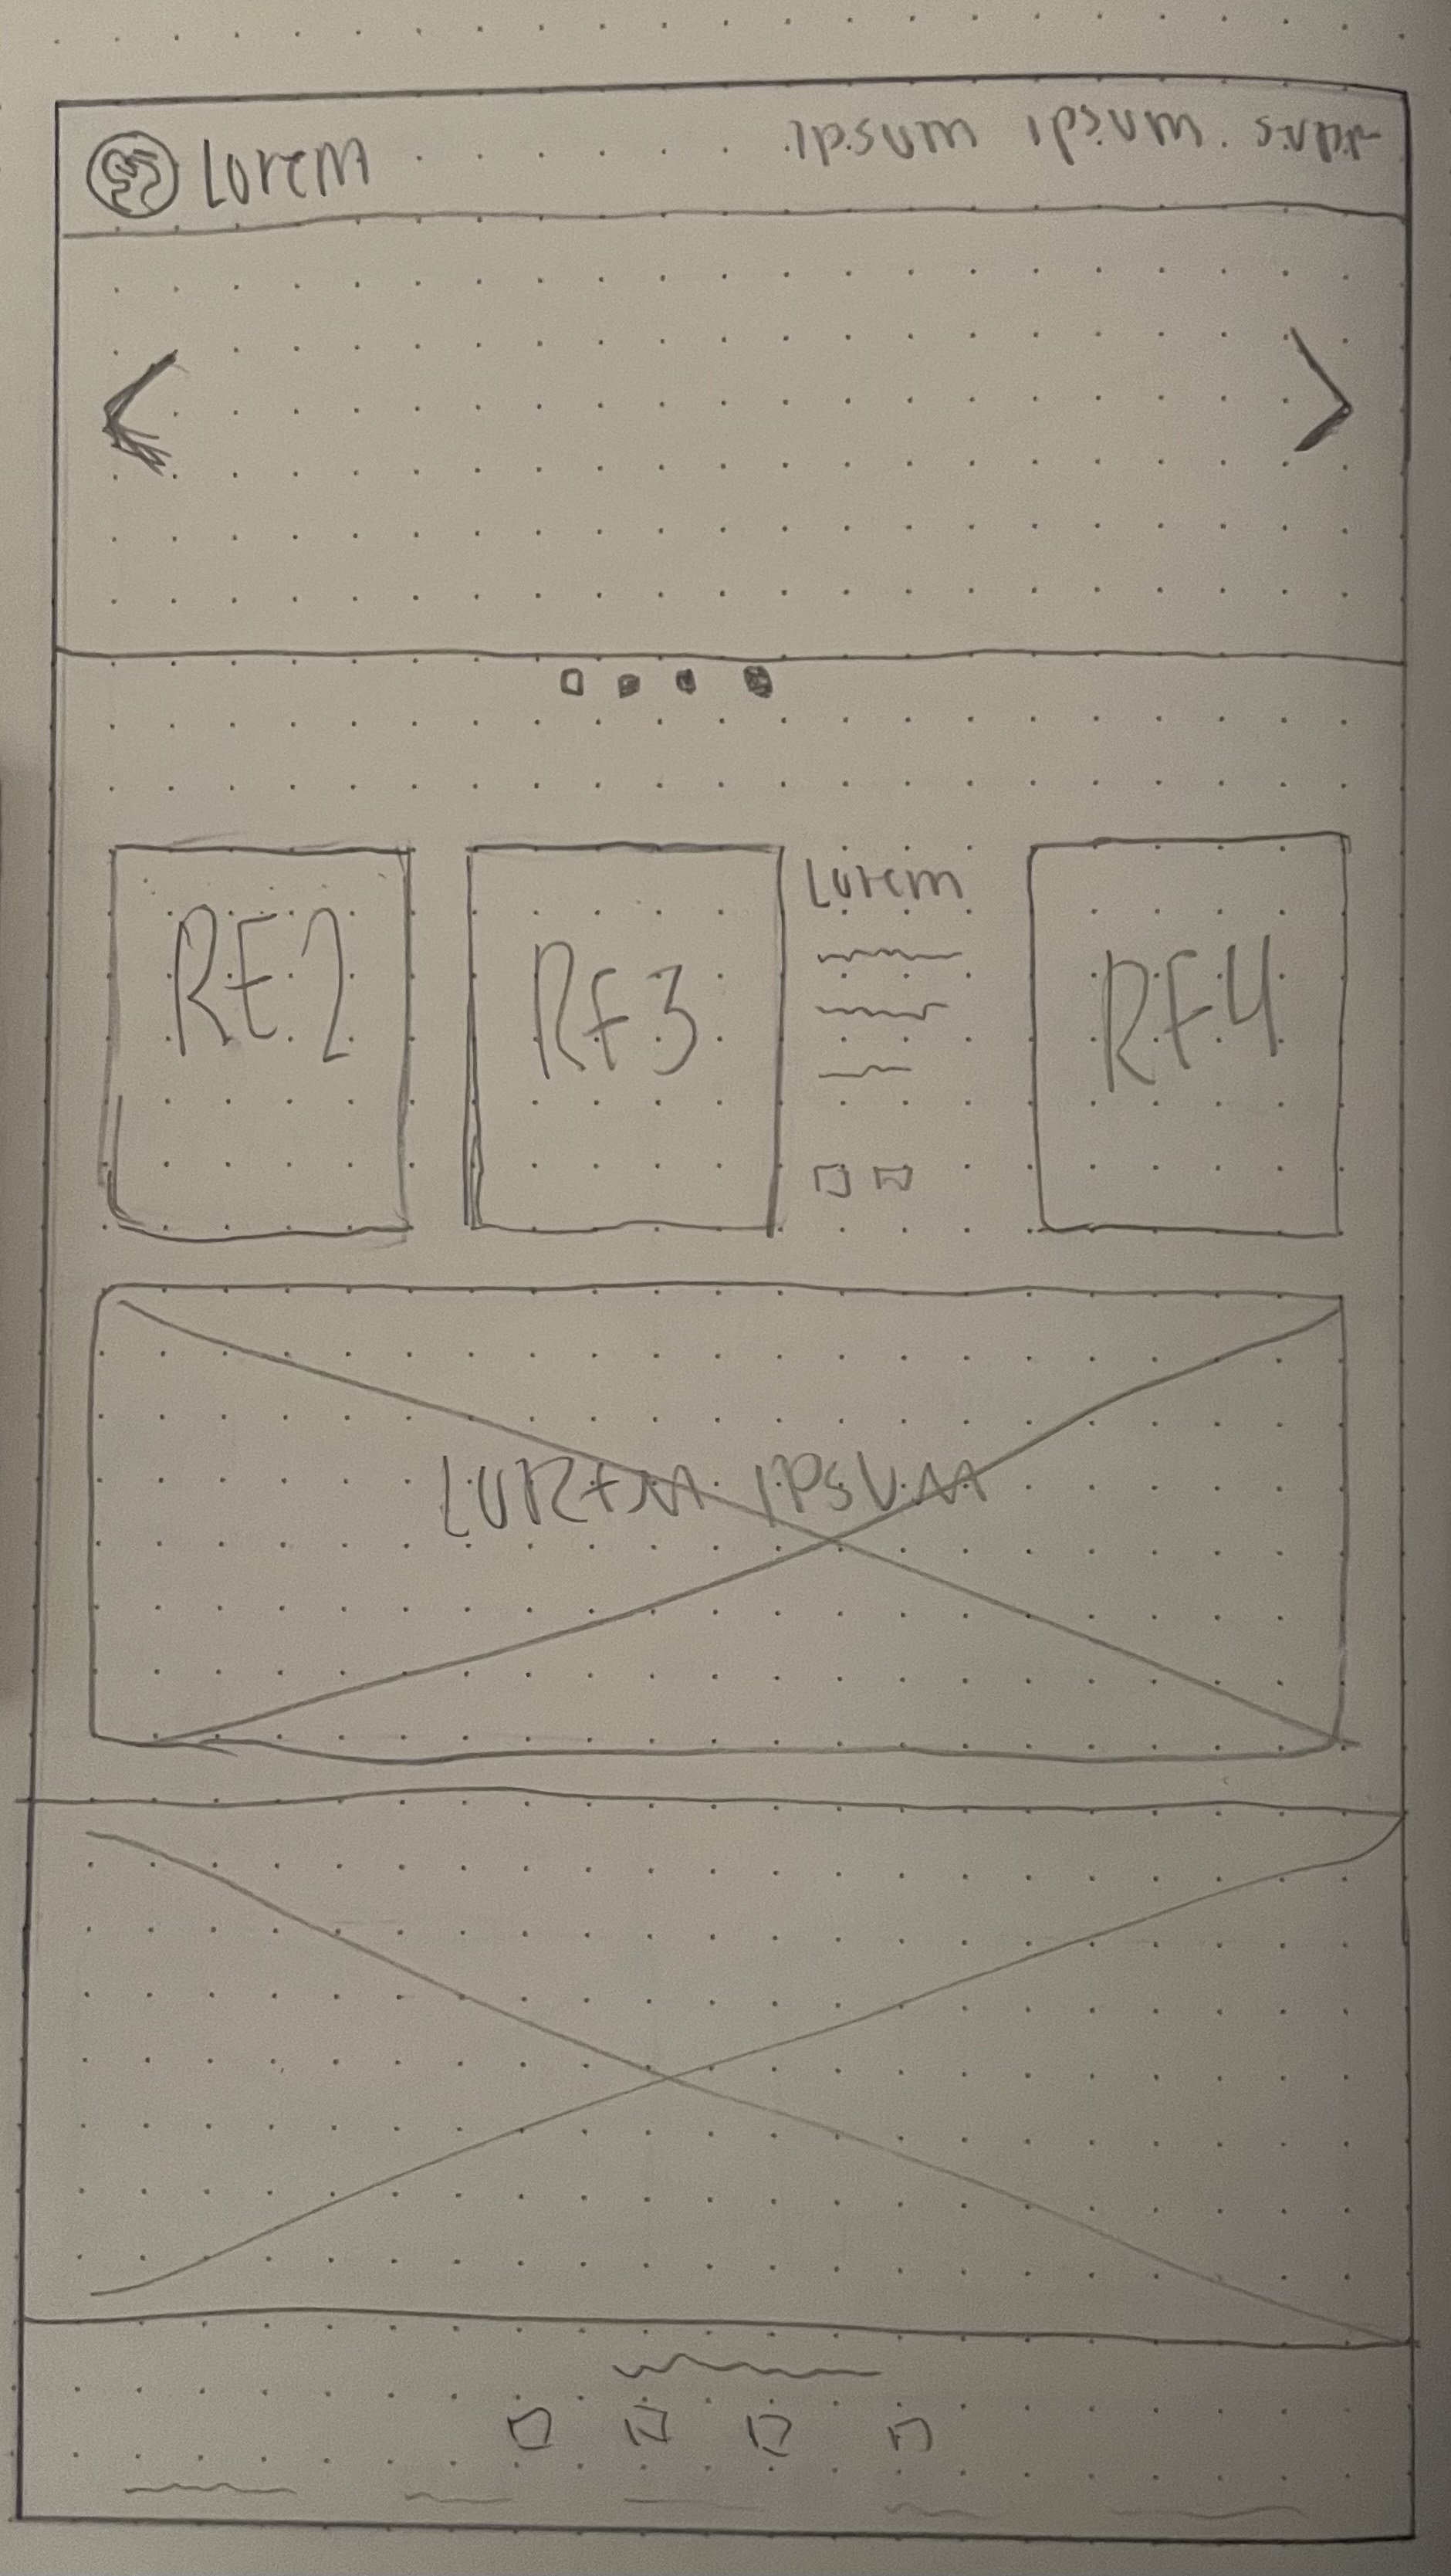 Lorem
ipsum ipsum
RE2
RE3
Lorem
RE4
LOREM IPSUM